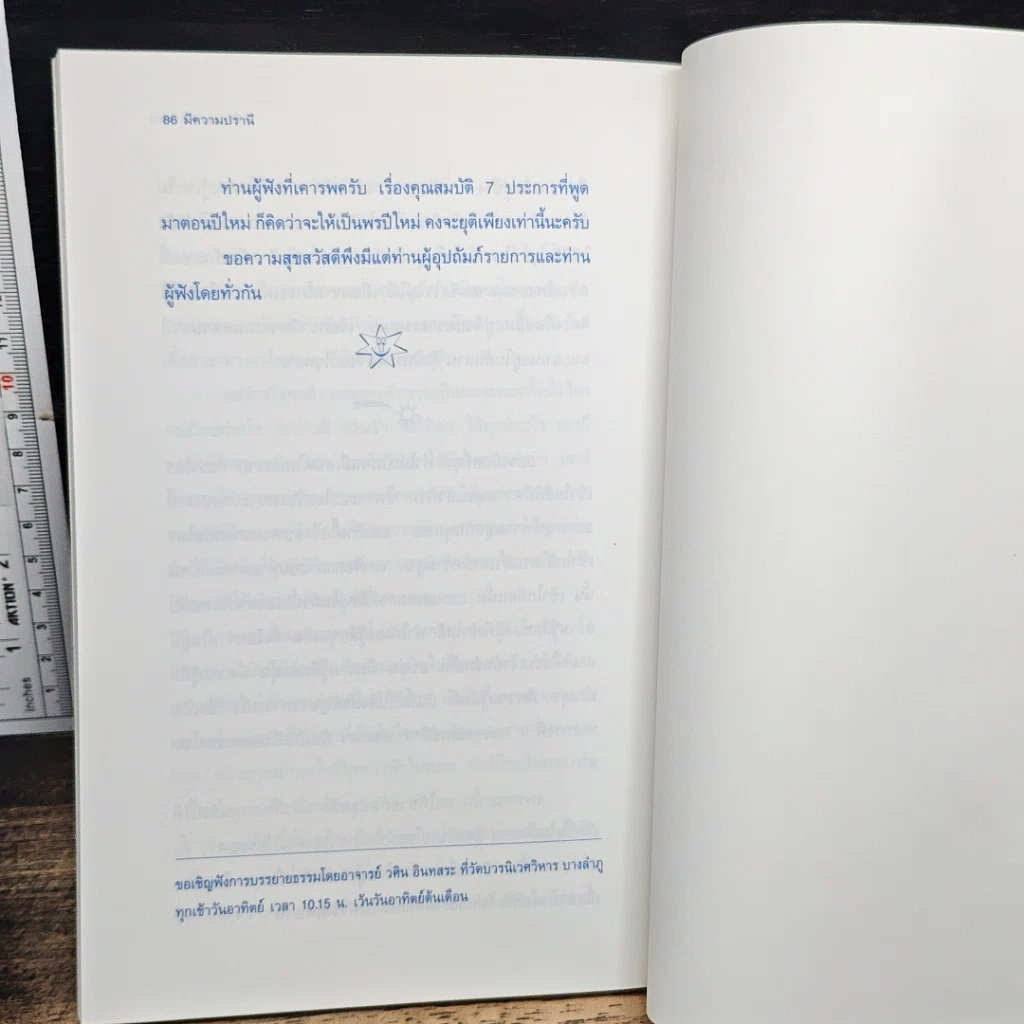 86 มีความปรานี
ท่านผู้ฟังที่เคารพครับ เรื่องคุณสมบัติ 7 ประการที่พูด
มาตอนปีใหม่ ก็คิดว่าจะให้เป็นพรปีใหม่ คงจะยุติเพียงเท่านี้นะครับ
ขอความสุขสวัสดีพึงมีแต่ท่านผู้อุปถัมภ์รายการและท่าน
ผู้ฟังโดยทั่วกัน
ขอเชิญฟังการบรรยายธรรมโดยอาจารย์ วศิน อินทสระ ที่วัดบวรนิเวศวิหาร บางลำภู
ทุกเช้าวันอาทิตย์ เวลา 10.15 น. เว้นวันอาทิตย์ต้นเดือน
11
10
9
8
7
6
5
4
3
2
1
2
1
AKTION
Inches